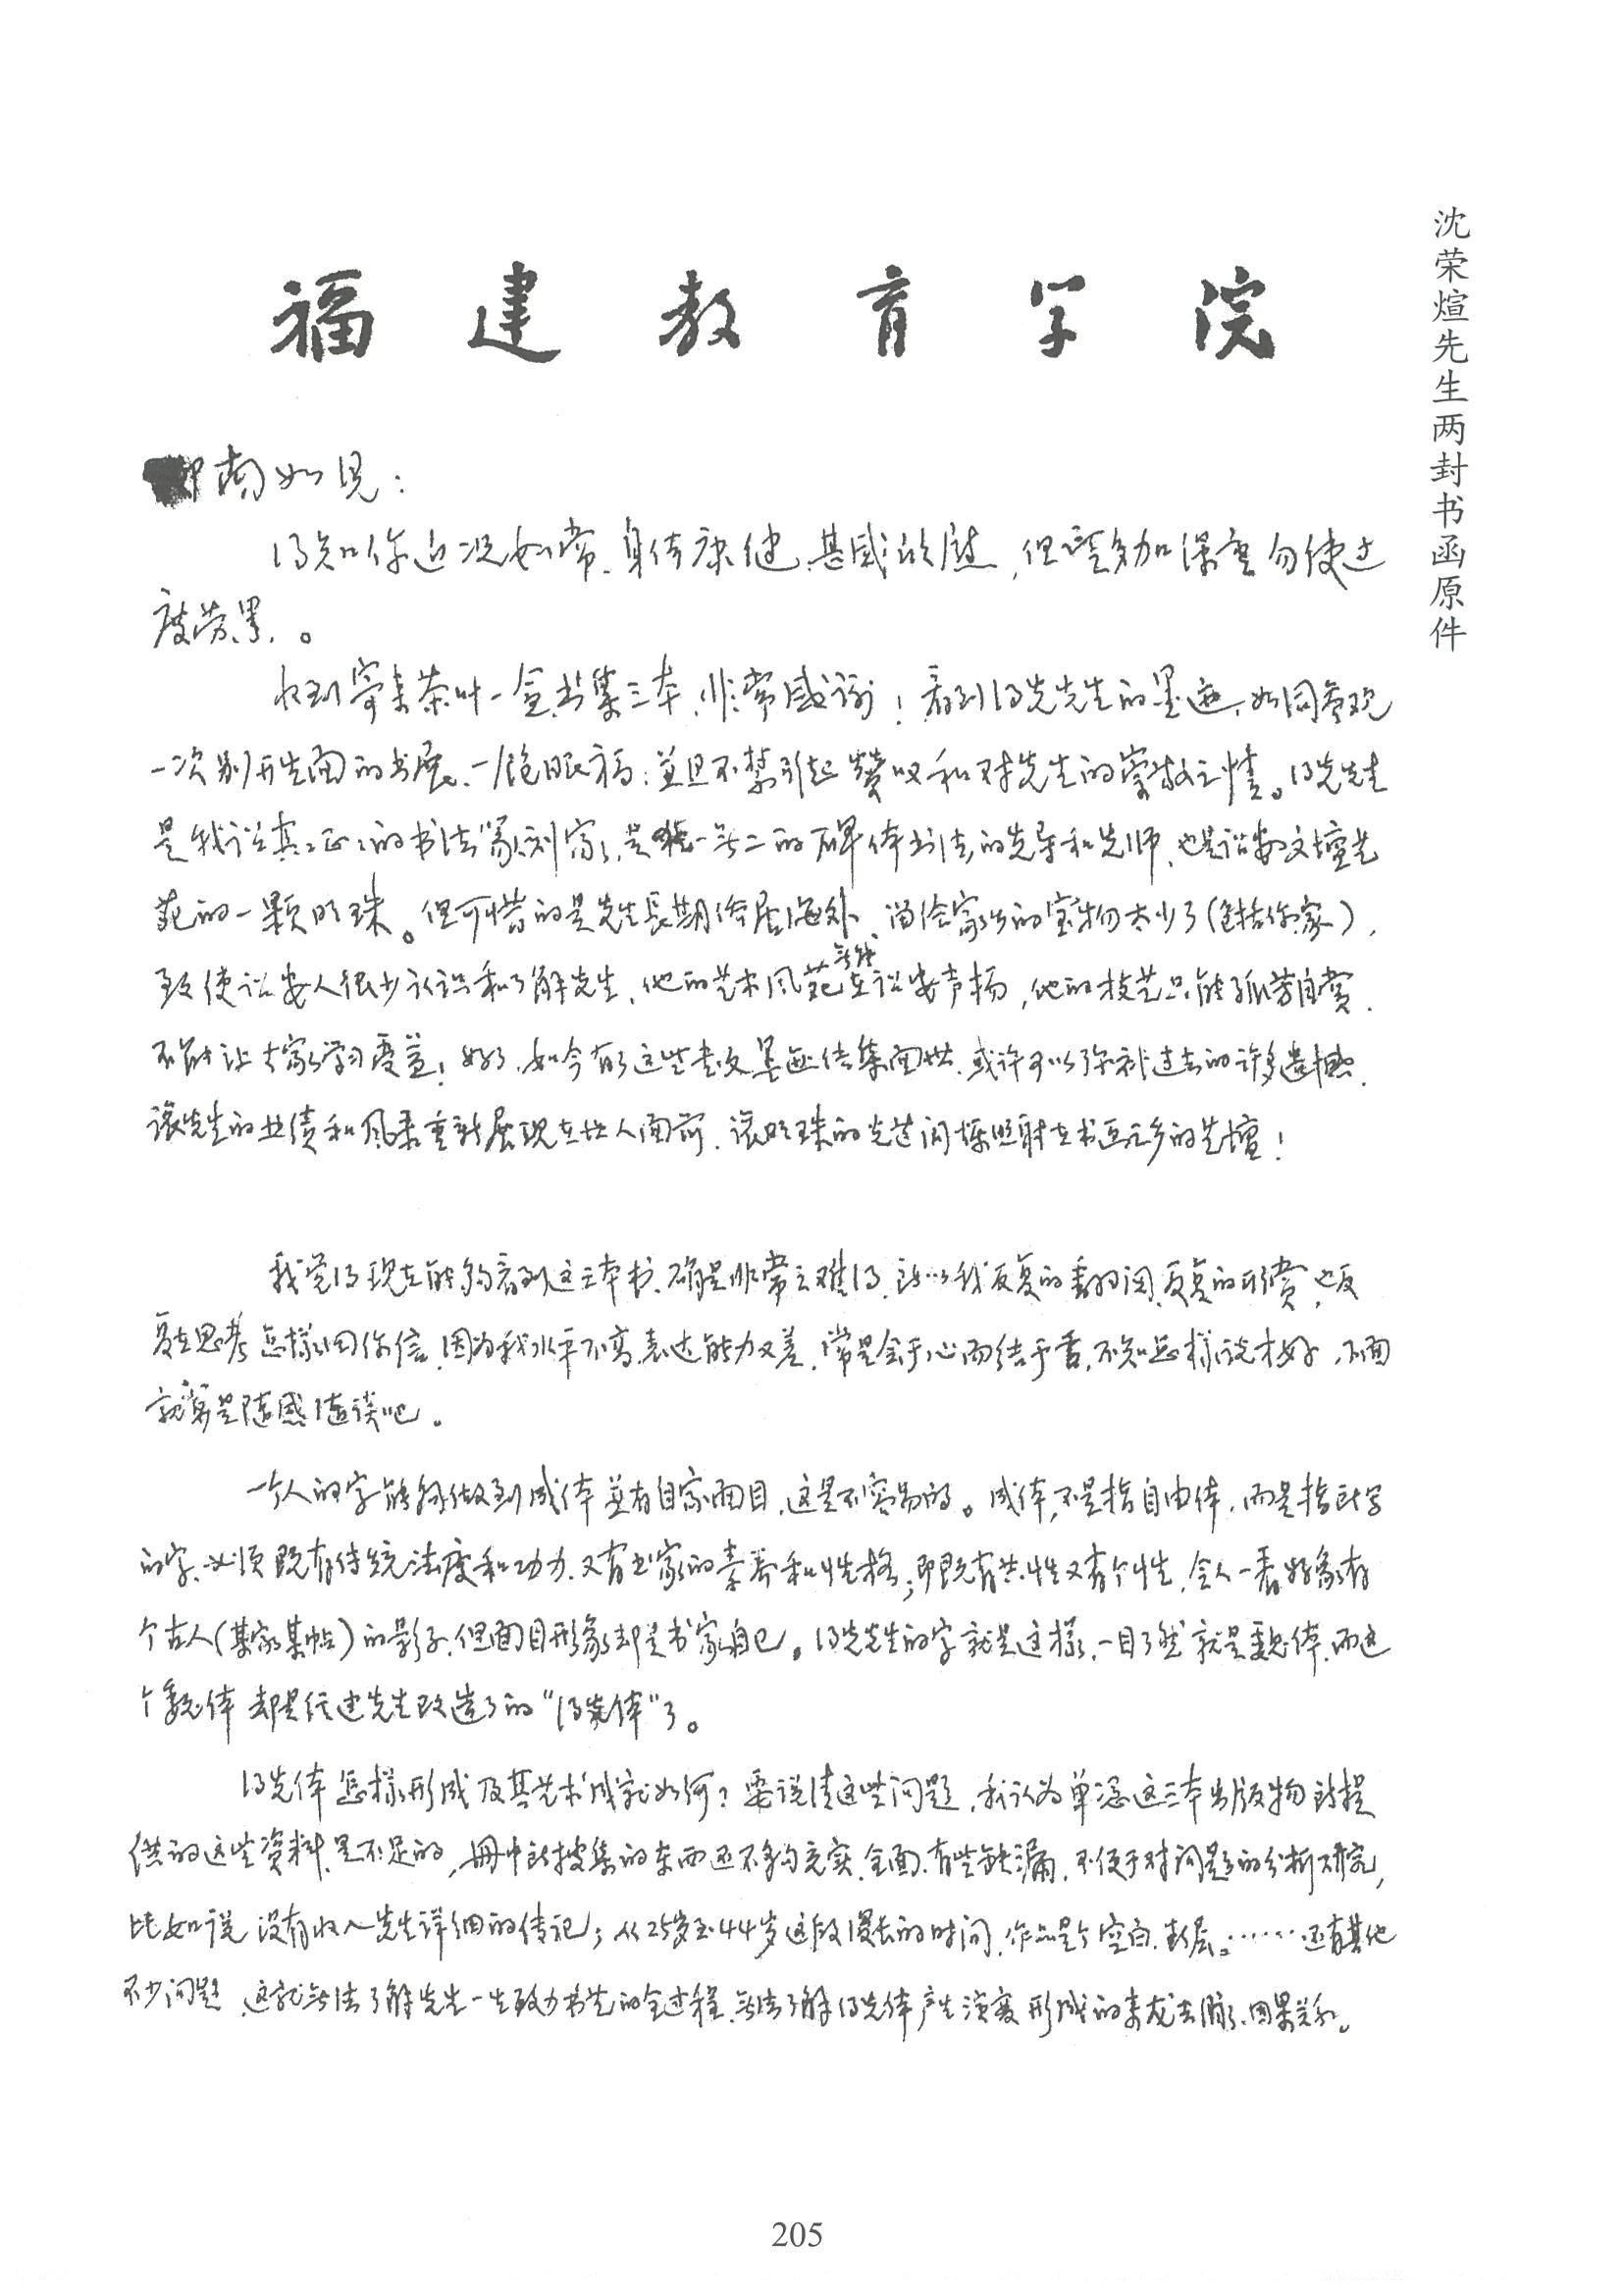 沈荣煊先生两封书函原件
福建教育学院
南如见：
得知你近况如常、身体康健、甚感欣慰，但望多加保重勿使过
度劳累。
收到寄来茶叶一盒、书集三本，非常感谢！看到得先先生的墨迹，如同参观
一次别开生面的书展、一饱眼福；并且不禁引起赞叹和对先生的崇敬之情。得先先生
是我诏真真正正的书法篆刻家，是独一无二的碑体书法的先导和先师，也是诏安文坛艺
苑的一颗明珠。但可惜的是先生长期侨居海外、留给家乡的宝物太少了（包括你家），
致使诏安人很少认识和了解先生，他的艺术风范无缘在诏安声扬，他的技艺只能孤芳自赏，
不能让大家学习受益！好了，如今有了这些书文墨迹结集面世，或许可以弥补过去的许多遗憾，
让先生的业绩和风采重新展现在世人面前，让明珠的光芒闪烁照射在书画之乡的艺坛！
我觉得现在能够看到这三本书，确是非常之难得，所以我反复的翻阅、反复的欣赏，也反
复在思考怎样回你信，因为我水平不高，表达能力又差，常是会于心而结于舌，不知怎样说才好，下面
就算是随感随谈吧。
一个人的字能够做到成体并有自家面目，这是不容易的。成体，不是指自由体，而是指所写
的字、必须既有传统法度和功力，又有书家的素养和性格；即既有共性又有个性，令人一看好象有
个古人（某家某帖）的影子，但面目形象却是书家自己。得先先生的字就是这样，一目了然就是魏体，而这
个魏体却是经过先生改造了的“得先体”了。
得先体怎样形成及其艺术成就如何？要说清这些问题，我认为单凭这三本出版物所提
供的这些资料是不足的，册中所搜集的东西还不够充实、全面，有些缺漏，不便于对问题的分析研究，
比如说没有收入先生详细的传记；从25岁至44岁这段漫长的时间，作品是个空白、断层。……还有其他
不少问题，这就无法了解先生一生致力书艺的全过程，无法了解得先体产生演变形成的来龙去脉、因果关系。
205